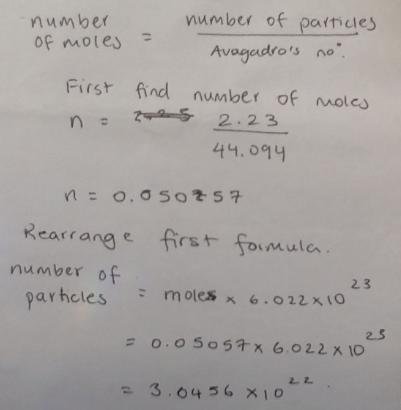 number of moles = number of particles / Avagadro's no.
First find number of moles
n = 2.23 / 44.094
n = 0.050257
Rearrange first formula.
number of particles = moles × 6.022 × 10^23
= 0.05057 × 6.022 × 10^23
= 3.0456 × 10^22.